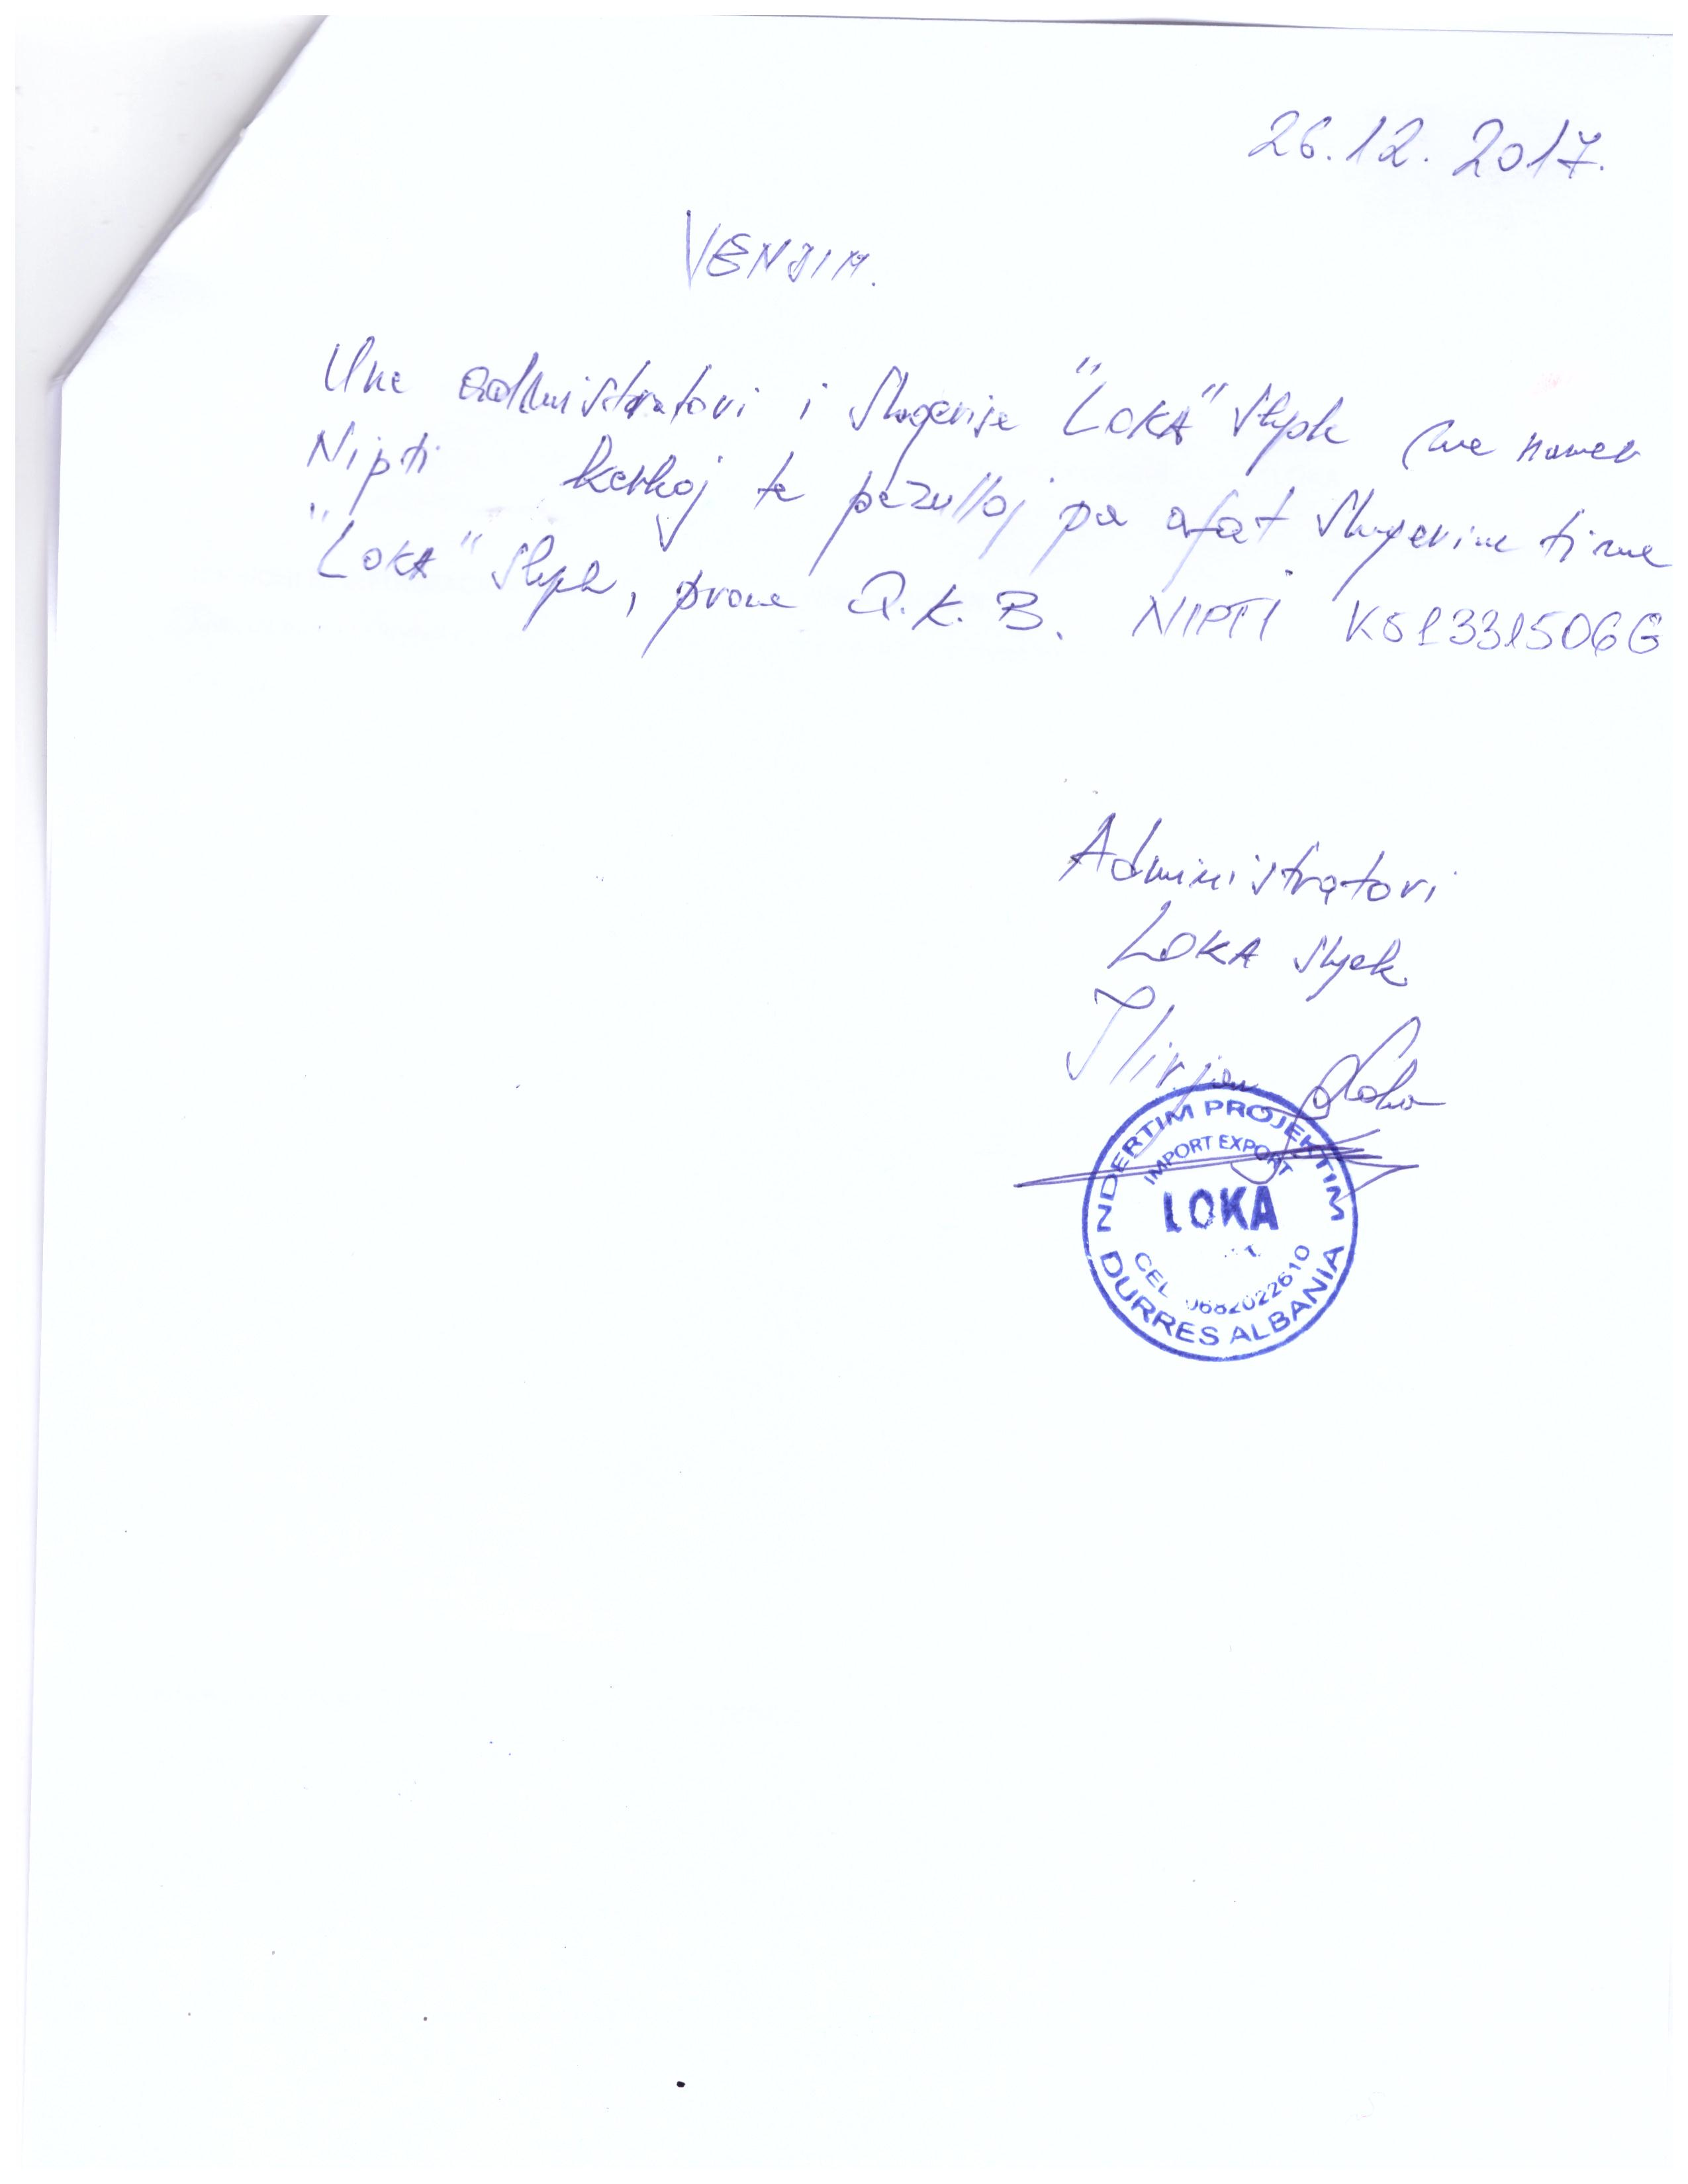 26.12.2017.
VENJIM.
Une administratori i shoqerise "LOKA" shpk (me numer
Nipti kerkoj te pezulloj pa afat shoqerine time
"LOKA" shpk, prane Q.K.B. NIPTI K51331506G
Administratori
LOKA shpk
Ilirjan Loka
NDERTIM PROJEKTIM
IMPORT EXPORT
LOKA
CEL 0682022610
DURRES ALBANIA